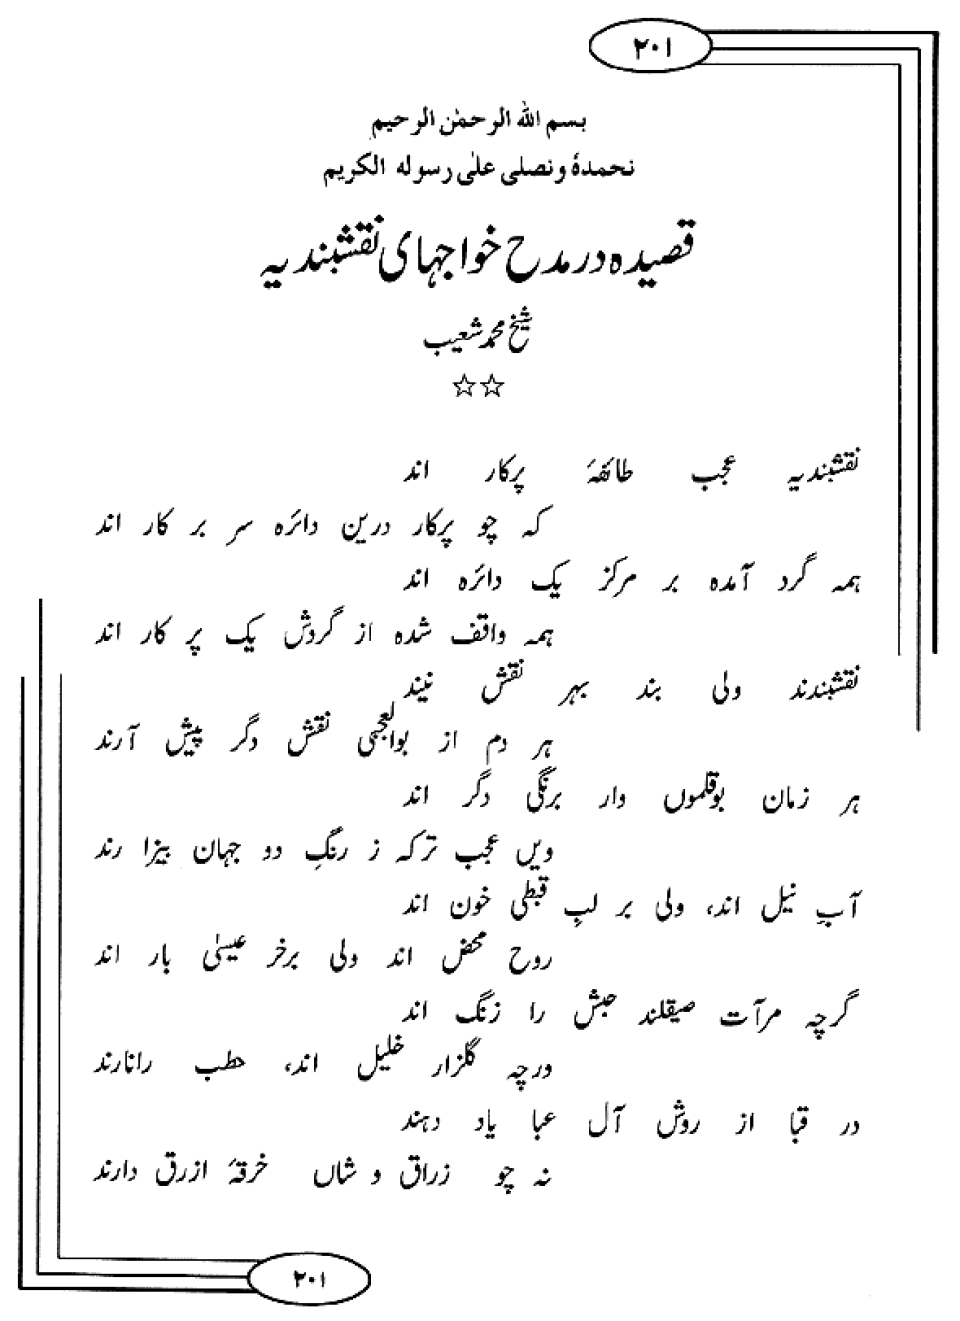 ۲۰۱
بسم الله الرحمٰن الرحیم
نحمدهٗ ونصلی علیٰ رسوله الکریم
قصیدہ در مدح خواجہای نقشبندیہ
شیخ محمد شعیب
☆☆
نقشبندیہ عجب طائفۂ پرکار اند
کہ چو پرکار درین دائرہ سر بر کار اند
ہمہ گرد آمدہ بر مرکز یک دائرہ اند
ہمہ واقف شدہ از گردش یک پر کار اند
نقشبندند ولی بند بہر نقش نیند
ہر دم از بوالعجمی نقش دگر پیش آرند
ہر زمان بوقلموں وار برنگی دگر اند
ویں عجب ترکہ ز رنگِ دو جہان بیزا رند
آبِ نیل اند، ولی بر لبِ قبطی خون اند
روح محض اند ولی برخر عیسیٰ بار اند
گرچہ مرآت صیقلند حبش را زنگ اند
ورچہ گلزار خلیل اند، حطب رانارند
در قبا از روش آل عبا یاد دہند
نہ چو زراق و شاں خرقۂ ازرق دارند
۲۰۱